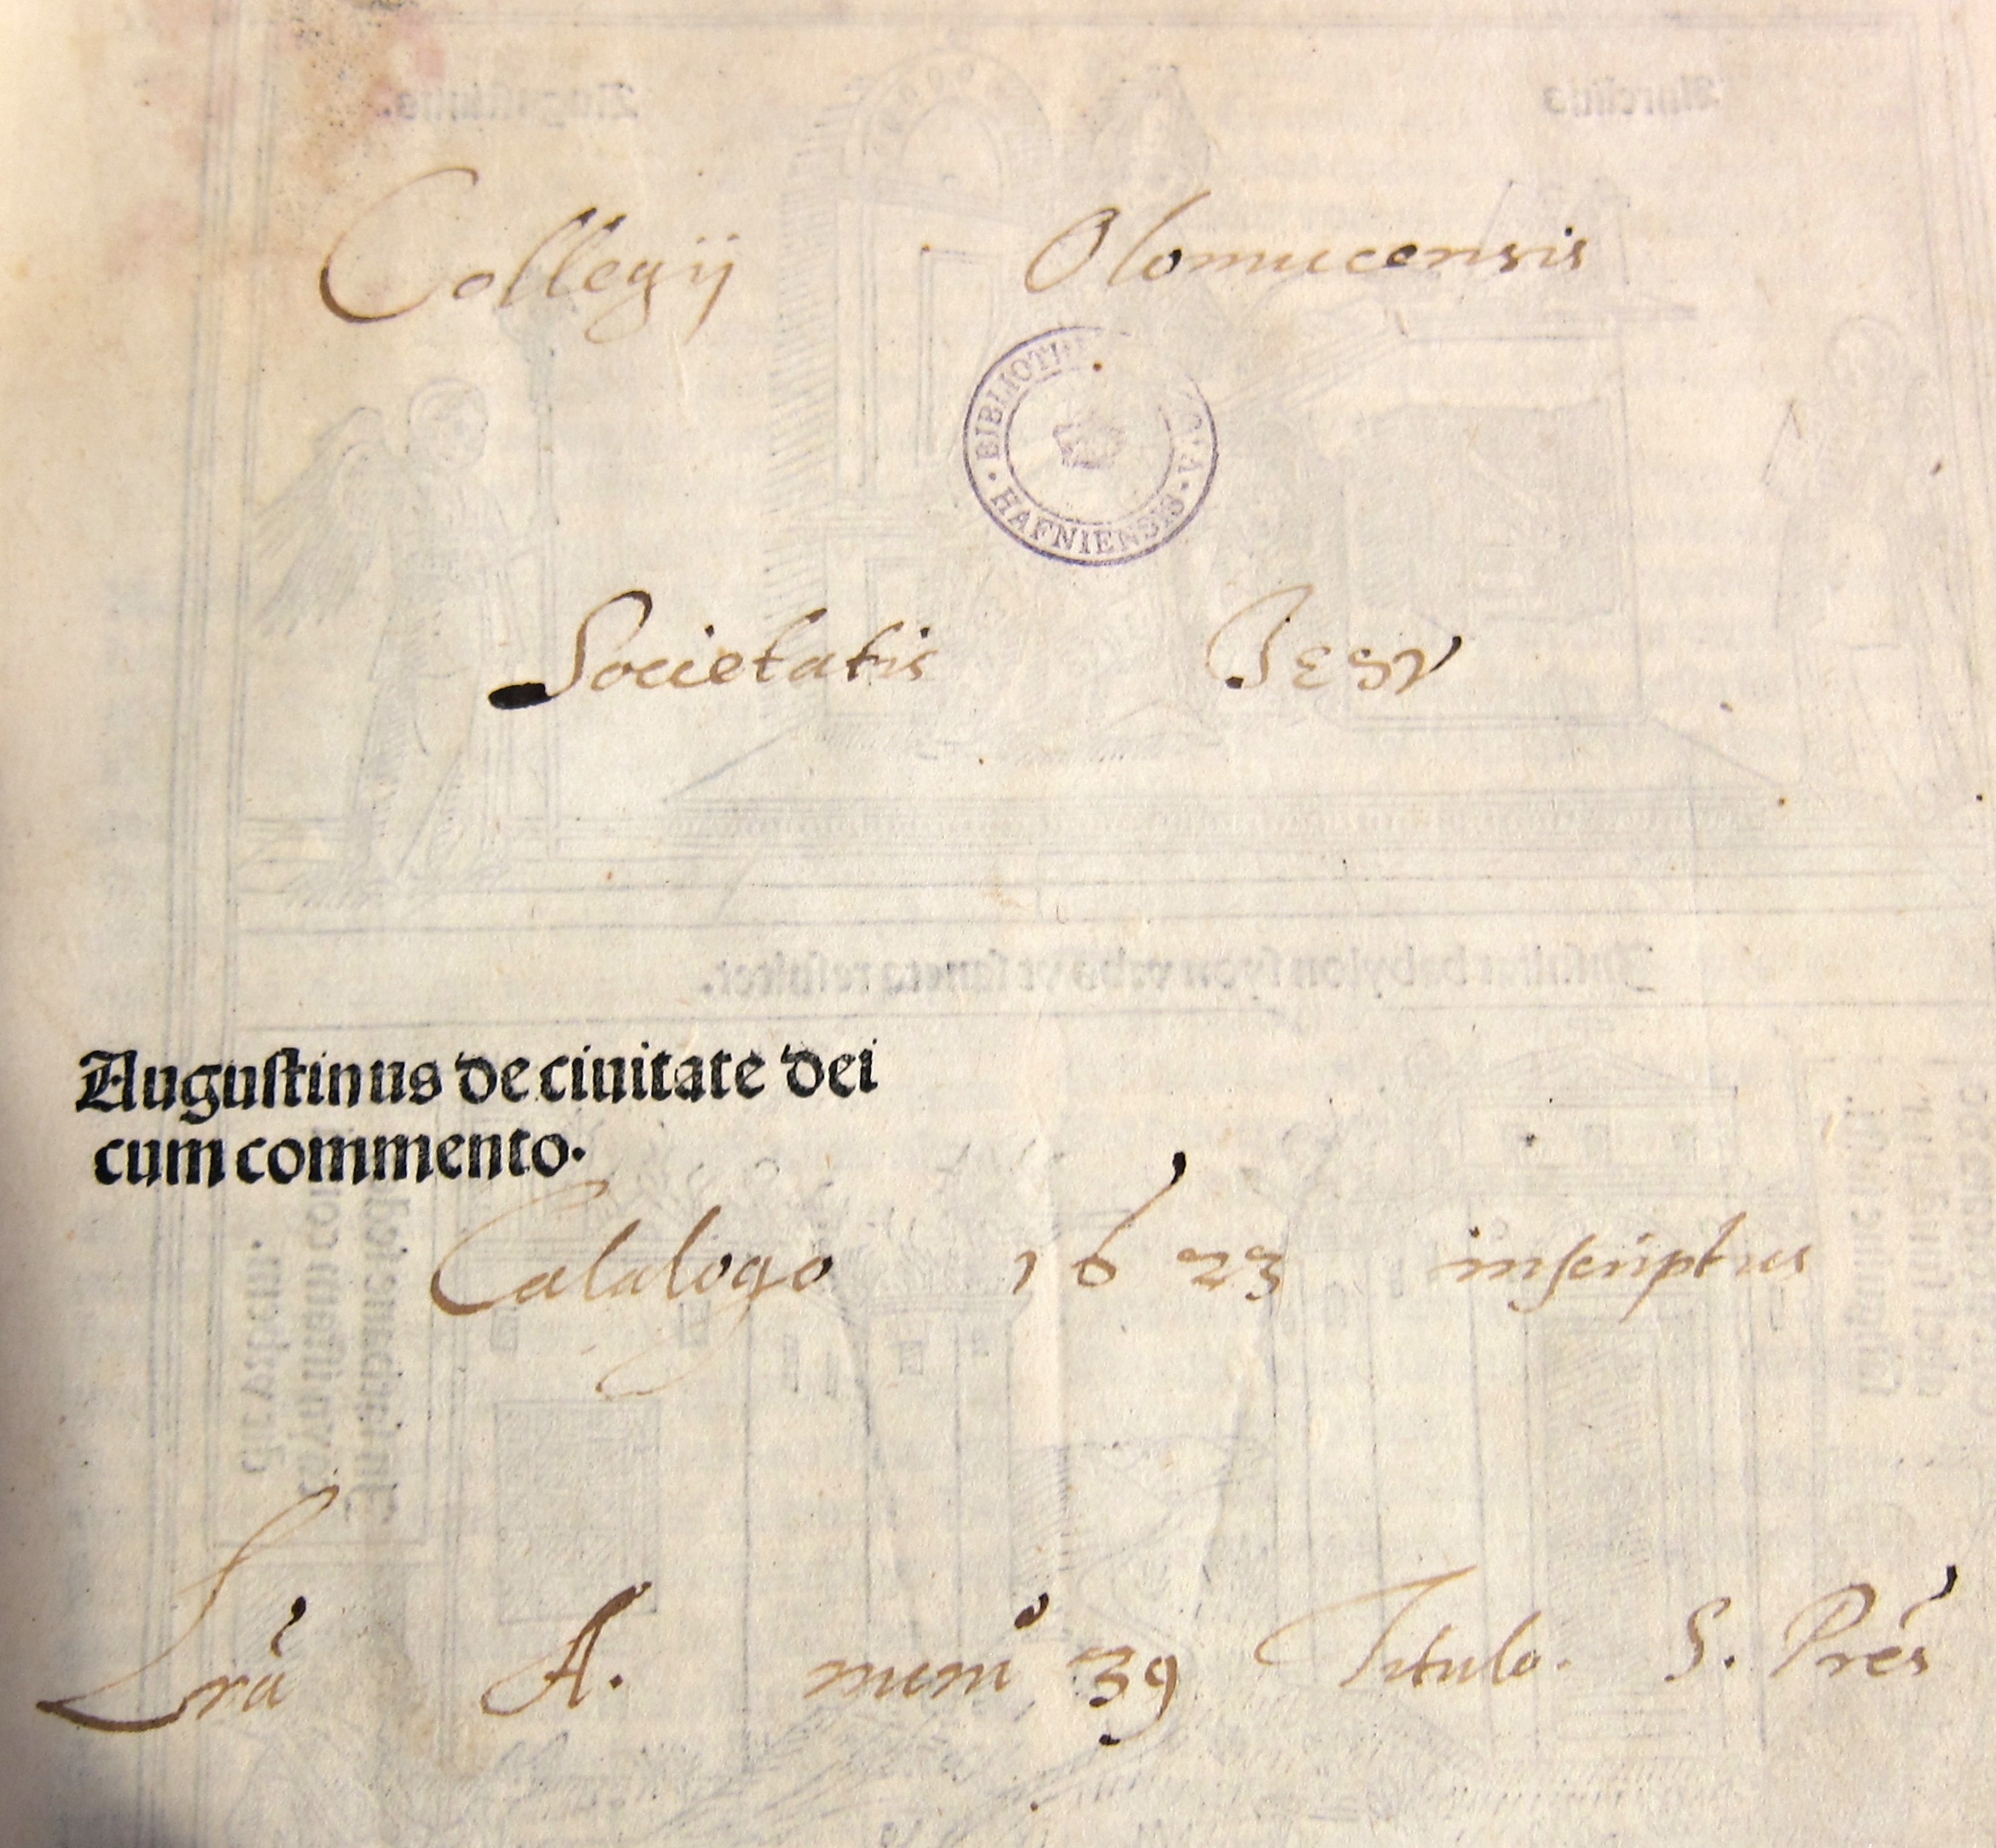 Collegij Olomucensis
HAFNIENSIS
Societatis Jesv
Augustinus de ciuitate dei
cum commento.
Catalogo 1623 inscriptus
Lrâ A. num̊ 39 Titulo. S. Pres